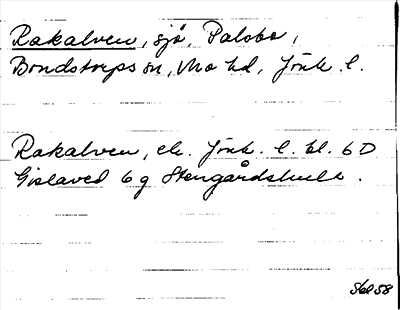 Rakalven, sjö, Palsbo,
Bondstorps sn, Mo hd, Jönk. l.
Rakalven, ek. Jönk. l. bl. 6 D
Gislaved 6 g Stengårdshult.
58